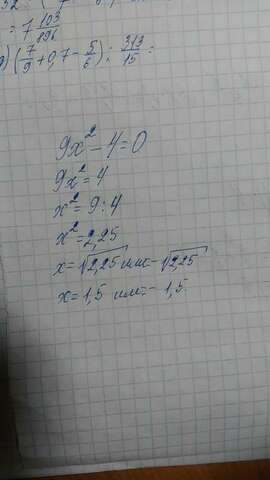 = 7 103/896
(7/9 + 0,7 - 5/6) : 313/15 =
9x² - 4 = 0
9x² = 4
x² = 9 : 4
x² = 2,25
x = √2,25 или - √2,25
x = 1,5 или = - 1,5.